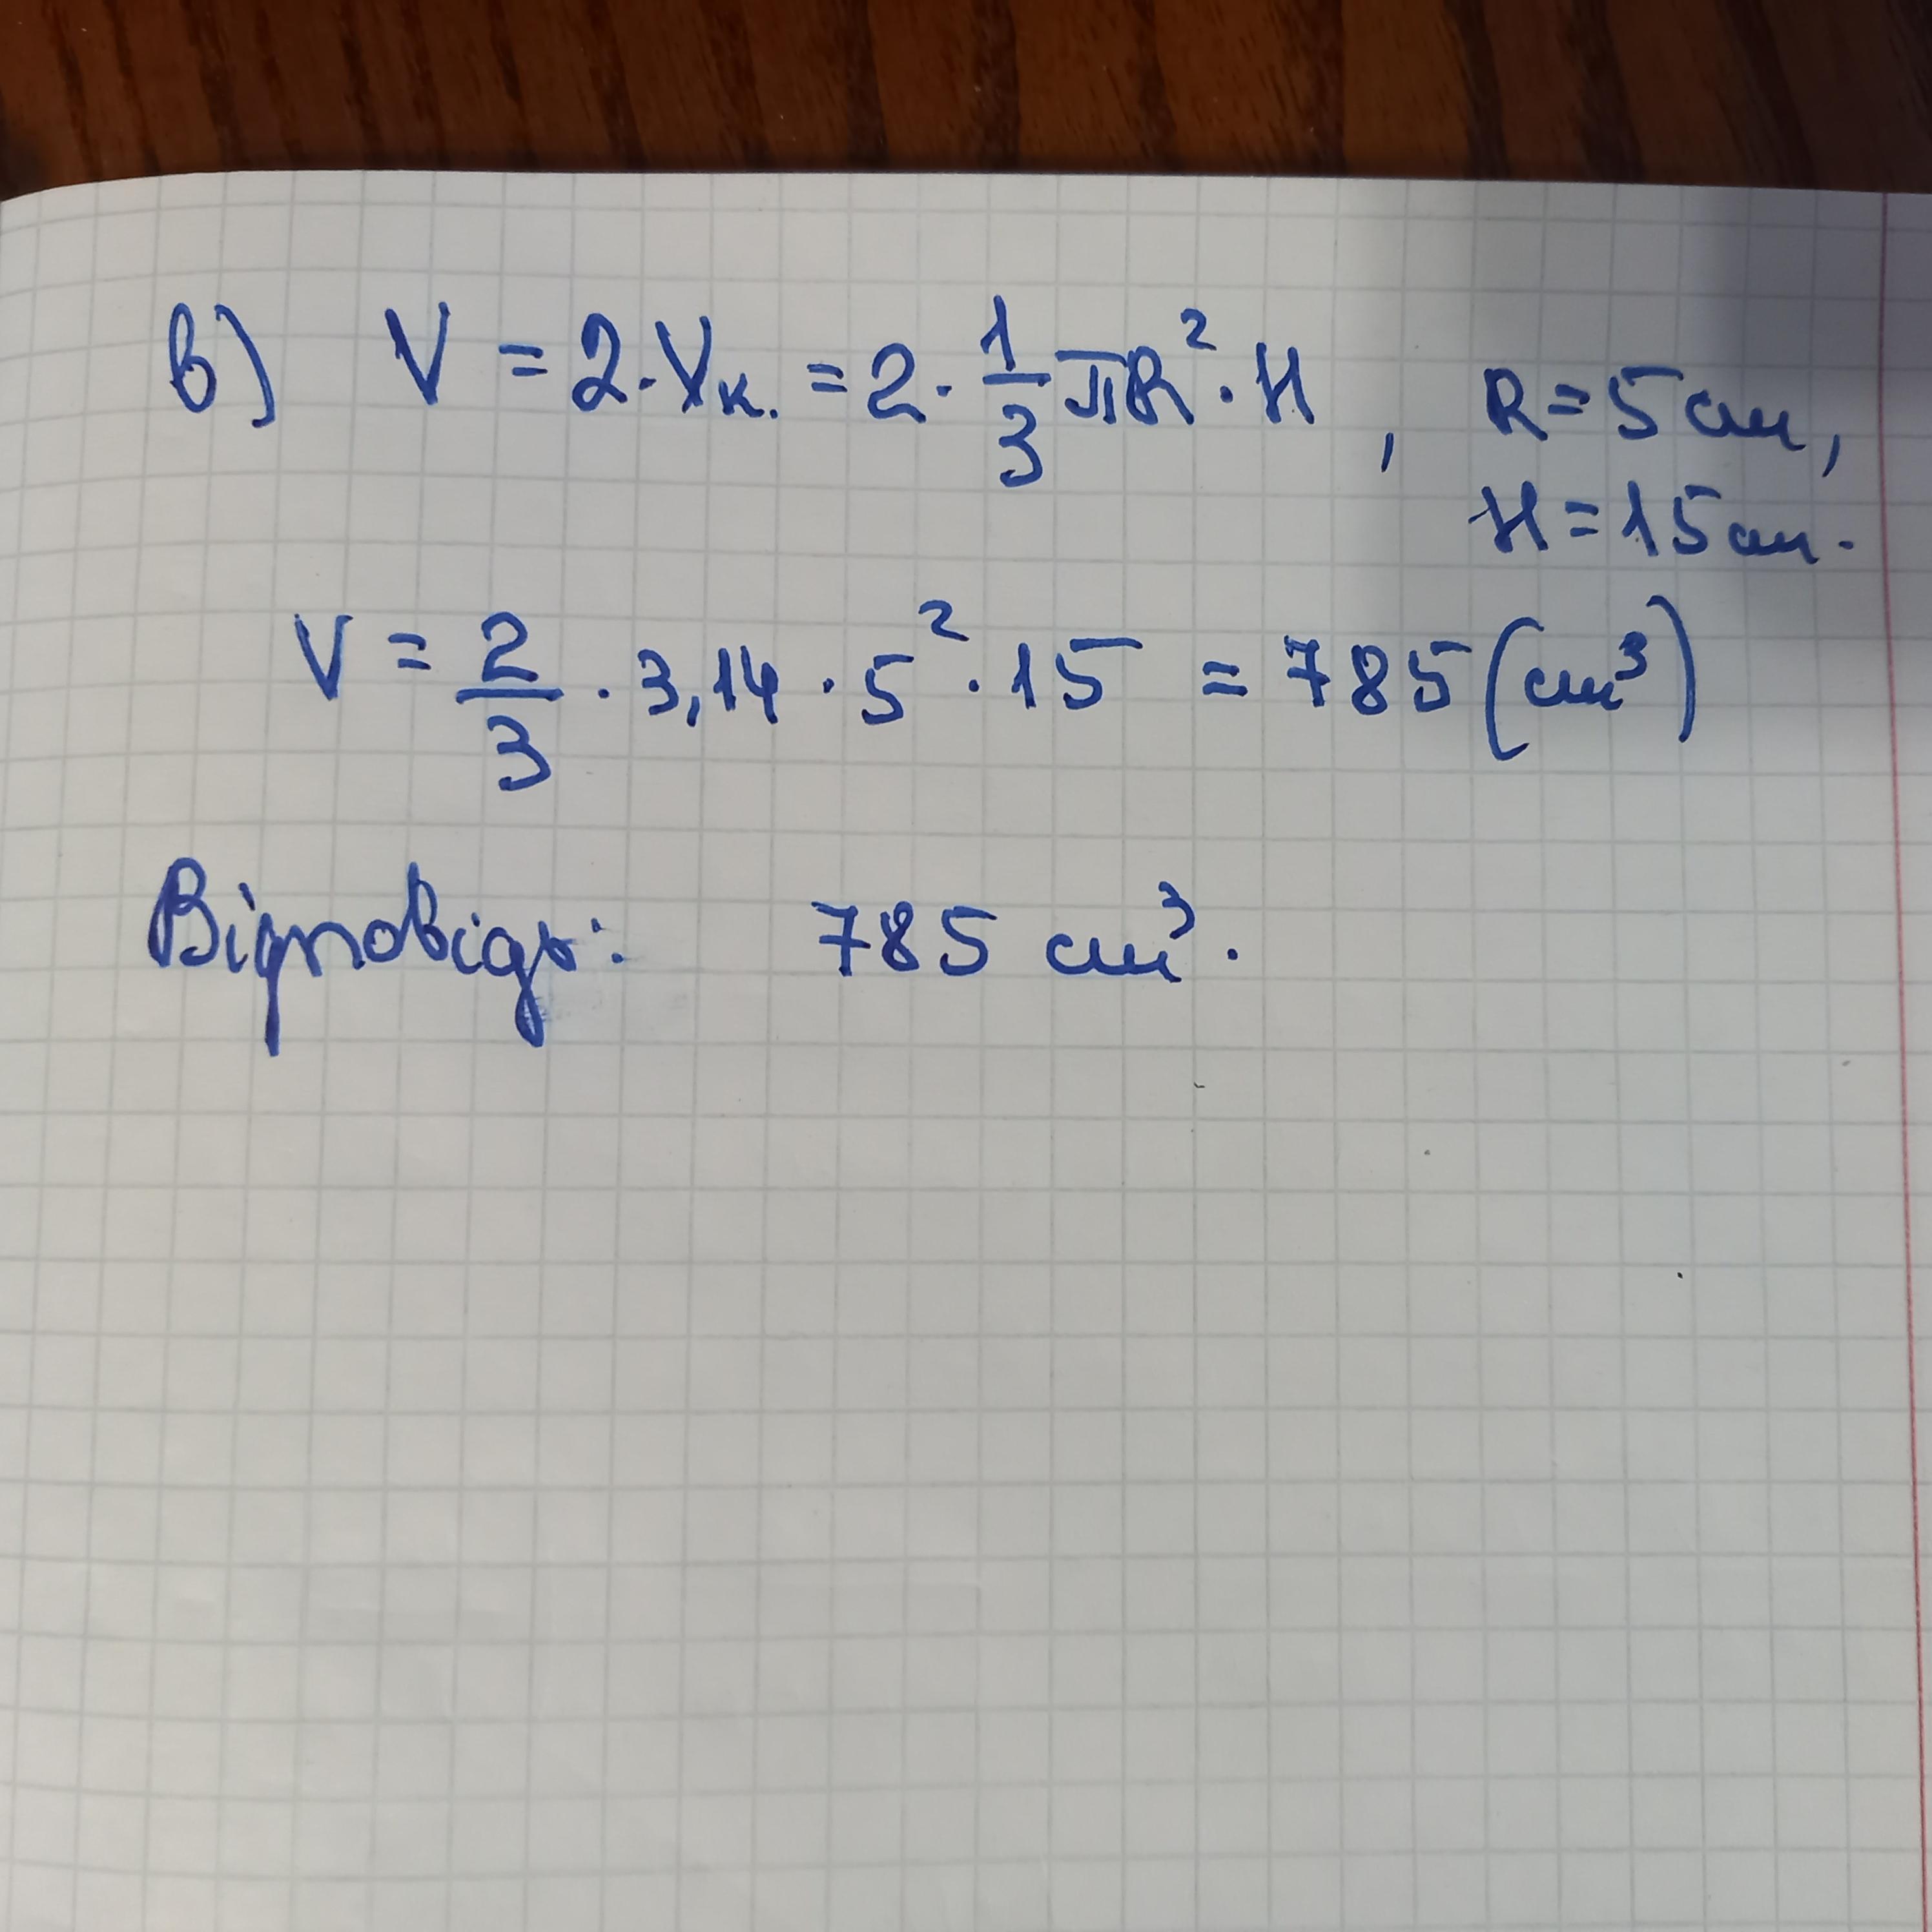 в) V = 2·Vк. = 2· 1/3 πR²·H , R=5см,
H=15см.
V = 2/3 · 3,14 · 5² · 15 = 785 (см³)
Відповідь: 785 см³.